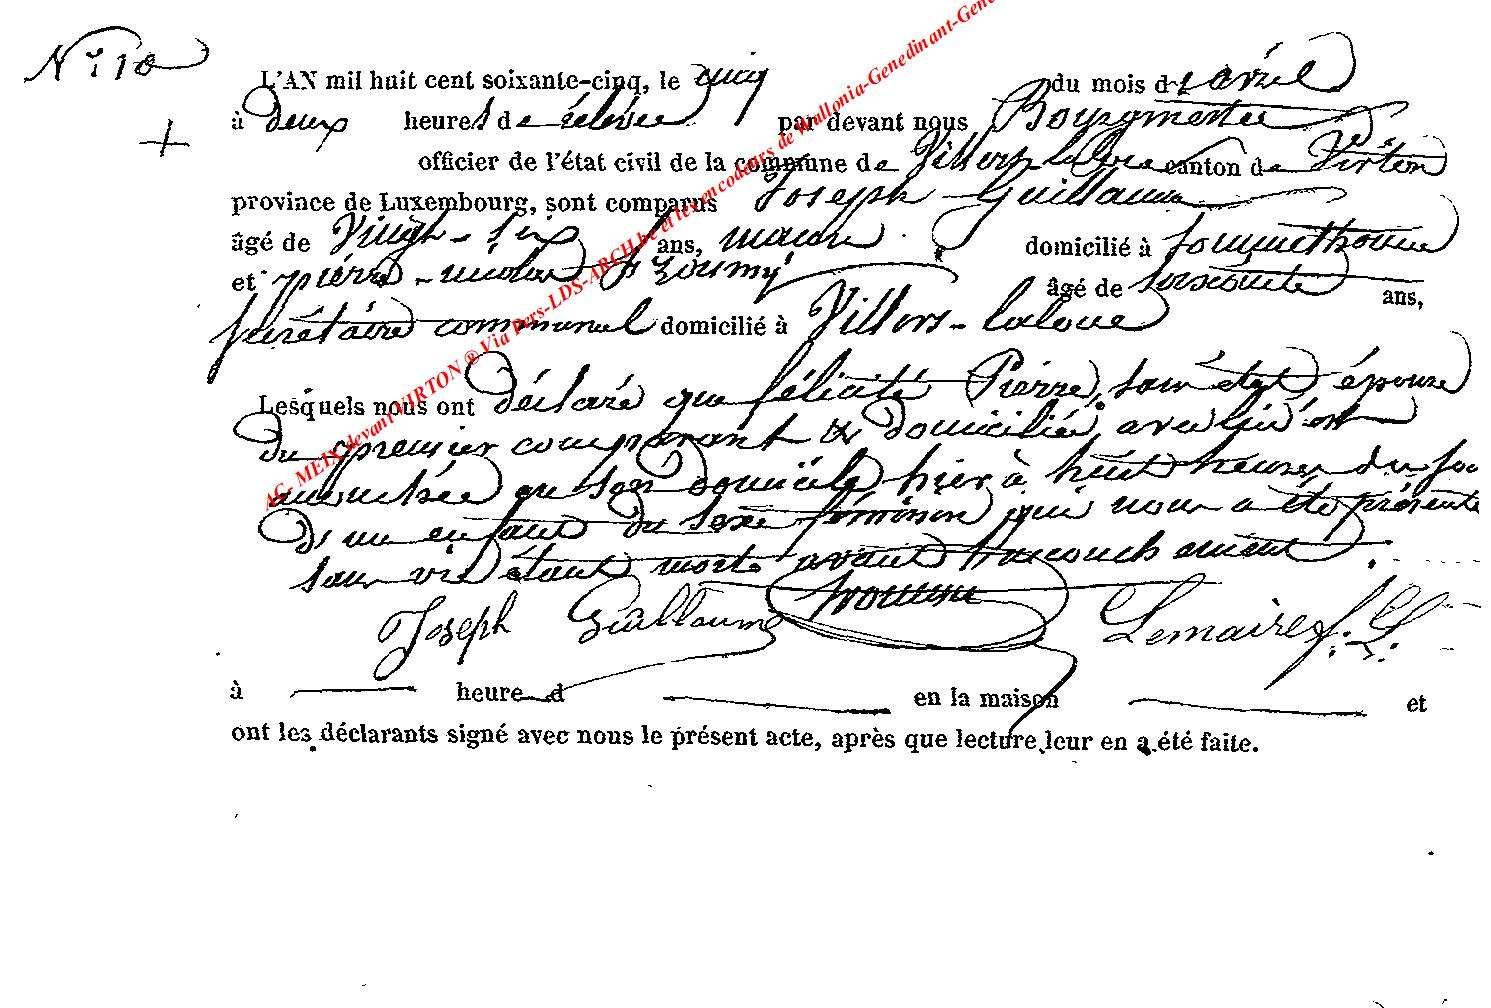 N° 10
L'AN mil huit cent soixante-cinq, le cinq du mois d'avril
à deux heures de relevée par devant nous Bourgmestre
officier de l'état civil de la commune de Villers laloue canton de Virton
province de Luxembourg, sont comparus Joseph Guillaume
âgé de Vingt-six ans, maçon domicilié à Sommethonne
et pierre-nicolas âgé de soixante ans,
secrétaire communal domicilié à Villers-laloue
Lesquels nous ont déclaré que félicité Pierre, sans état épouse
du premier comparant & domiciliée avec lui est
accouchée en son domicile hier à huit heures du soi
d'un enfant du sexe féminin qui nous a été présenté
sans vie étant morte avant l'accouchement.
Joseph Guillaume Lemaire
à heure d en la maison et
ont les déclarants signé avec nous le présent acte, après que lecture leur en a été faite.
AC- MEIX devant VIRTON ® Via Pers-LDS-ARCH.be et les encodeurs de Wallonia-Genedinant-Gene